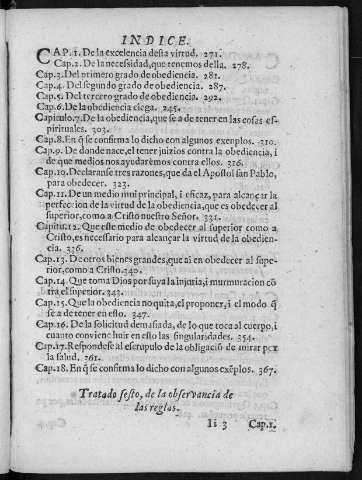 INDICE.
CAP.1. De la excelencia desta virtud. 271.
Cap.2. De la necessidad, que tenemos della. 278.
Cap.3. Del primero grado de obediencia. 281.
Cap.4. Del segundo grado de obediencia. 287.
Cap.5. Del tercero grado de obediencia. 292.
Cap.6. De la obediencia ciega. 245.
Capitulo.7. De la obediencia, que se a de tener en las cosas es-
pirituales. 303.
Cap.8. En q̃ se confirma lo dicho con algunos exenplos. 310.
Cap.9. De donde nace, el tener juizios contra la obediencia, i
de que medios nos ayudarèmos contra ellos. 316.
Cap.10. Declaranse tres razones, que da el Apostol san Pablo,
para obedecer. 323.
Cap.11. De un medio mui principal, i eficaz, para alcançar la
perfecion de la virtud de la obediencia, que es obedecer al
superior, como a Cristo nuestro Señor. 331.
Capitu.12. Que este medio de obedecer al superior como a
Cristo, es necessario para alcançar la virtud de la obedien-
cia. 336.
Cap.13. De otros bienes grandes, que ai en obedecer al supe-
rior, como a Cristo. 340.
Cap.14. Que toma Dios por suya la injuria, i murmuracion cõ
tra el superior. 343.
Cap.15. Que la obediencia no quita, el proponer, i el modo q̃
se a de tener en esto. 347.
Cap.16. De la solicitud demasiada, de lo que toca al cuerpo, i
cuanto conviene huir en esto las singularidades. 354.
Cap.17. Respondese al escrupulo de la obligaciõ de mirar por
la salud. 361.
Cap.18. En q̃ se confirma lo dicho con algunos exẽplos. 367.
Tratado sesto, de la observancia de
las reglas.
Ii 3 Cap.1.